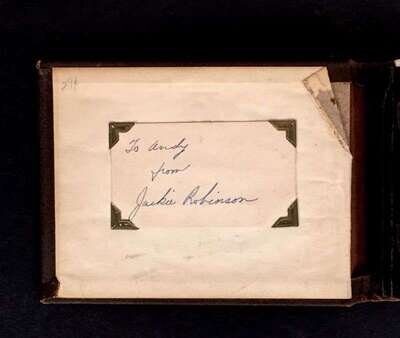 To Andy
from
Jackie Robinson